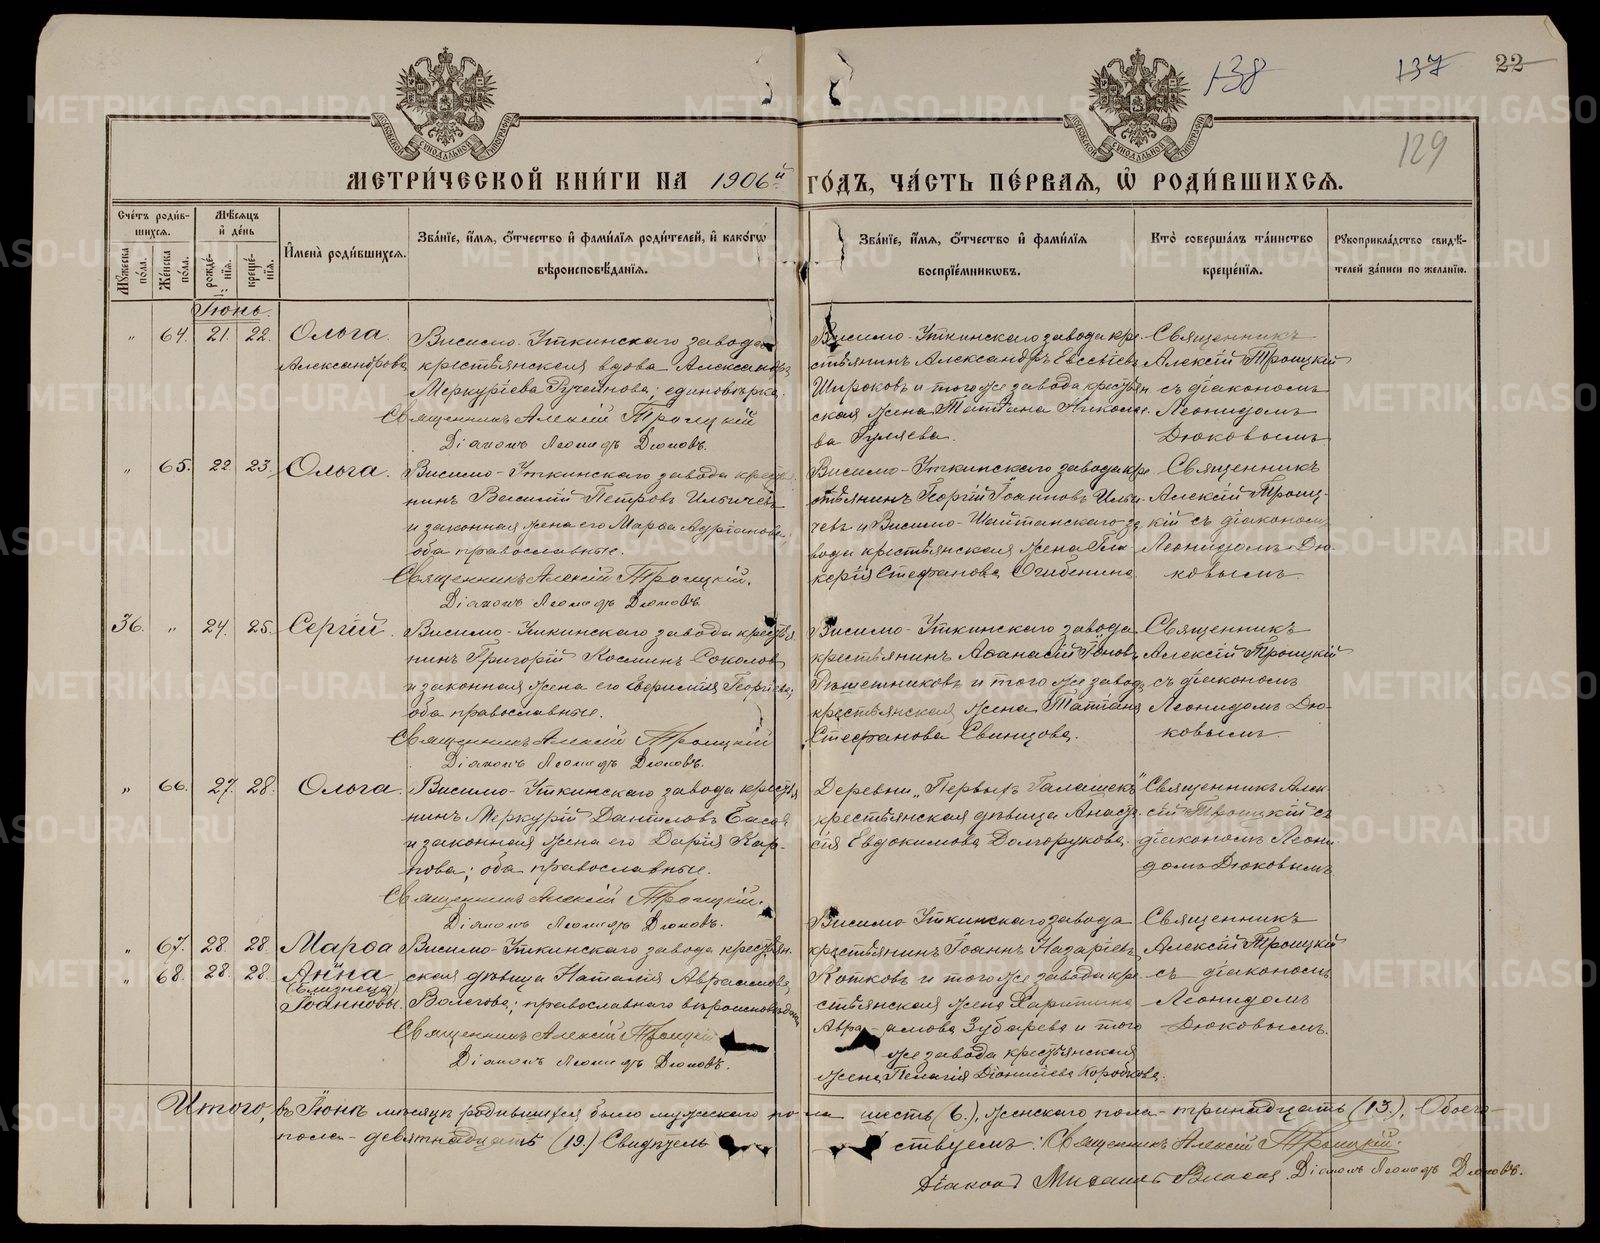 138
137
22
129
МЕТРИ́ЧЕСКОЙ КНИ́ГИ НА 1906й ГО́ДЪ, ЧА́СТЬ ПЕ́РВАЯ, Ѡ҆ РОДИ́ВШИХСЯ.
Сче́тъ роди́в-
шихся.
Мѣ́сяцъ
и҆ де́нь
Мꙋ́жеска по́ла.
Же́нска по́ла.
рожде́-
нїѧ.
креще́-
нїѧ.
И҆мена̀ роди́вшихся.
Зва́нїе, и҆́мя, ѻ҆́тчество и҆ фами́лїя роди́телей, и҆ како́гѡ
вѣроисповѣ́данїя.
Зва́нїе, и҆́мя, ѻ҆́тчество и҆ фами́лїя
воспрїе́мниковъ.
Кто̀ соверша́лъ та́инство
креще́нїя.
Рꙋкоприкла́дство свидѣ́-
телей за́писи по жела́нїю.
Іюнь.
„ 64. 21. 22. Ольга
Александрова
Висимо-Уткинскаго завода
крестьянская вдова Александра
Меркуріева ; единовѣрка.
Священникъ Алексій Троицкій
Діаконъ Леонидъ Дюковъ.
Висимо-Уткинскаго завода кре-
стьянинъ Александръ Евсевіевъ
Широковъ и того же завода крестьян-
ская жена Татіана Никола-
ва Гуляева.
Священникъ
Алексій Троицкій
съ діакономъ
Леонидомъ
Дюковымъ
„ 65. 22. 23. Ольга.
Висимо-Уткинскаго завода крестья-
нинъ Василій Петровъ Ильичевъ
и законная жена его Марѳа Адріанова,
оба православные.
Священникъ Алексій Троицкій.
Діаконъ Леонидъ Дюковъ
Висимо-Уткинскаго завода кре-
стьянинъ Георгій Іоанновъ Ильи-
чевъ и Висимо-Шайтанскаго за-
вода крестьянская жена Гли-
керія Стефанова Огибенина
Священникъ
Алексій Троиц-
кій съ діакономъ
Леонидомъ Дю-
ковымъ
36. „ 24. 25. Сергій.
Висимо-Уткинскаго завода крестья-
нинъ Григорій Космин Соколов
и законная жена его Евфимія Георгіева,
оба православные.
Священникъ Алексій Троицкій
Діаконъ Леонидъ Дюковъ.
Висимо-Уткинскаго завода
крестьянинъ Аѳанасій
Рѣшетниковъ и того же завода
крестьянская жена Татіана
Стефанова Свинцова.
Священникъ
Алексій Троицкій
съ діакономъ
Леонидомъ Дю-
ковымъ
„ 66. 27. 28. Ольга.
Висимо-Уткинскаго завода крестья-
нинъ Меркурій Даниловъ
и законная жена его Дарія Кар-
пова; оба православные.
Священникъ Алексій Троицкій.
Діаконъ Леонидъ Дюковъ.
Деревни „Первыхъ Галашекъ“
крестьянская дѣвица Анаста-
сія Евдокимова Долгорукова.
Священникъ Алек-
сій Троицкій съ
діакономъ Леони-
домъ Дюковымъ
„ 67. 28. 28. Марѳа
„ 68. 28. 28. Анна
(близнецы)
Іоанновы.
Висимо-Уткинскаго завода крестьян-
ская дѣвица Наталія Авраамова
Волегова; православнаго вѣроисповѣданія
Священникъ Алексій Троицкій
Діаконъ Леонидъ Дюковъ.
Висимо-Уткинскаго завода
крестьянинъ Іоаннъ Назаріевъ
Котковъ и того же завода кре-
стьянская жена Харитина
Авра-амова Зубарева и того
же завода крестьянская
жена Пелагія Діонисіева Коробкова.
Священникъ
Алексій Троицкій
съ діакономъ
Леонидомъ
Дюковымъ.
Итого, въ Іюнѣ мѣсяцѣ родившихся было мужескаго пола шесть (6.), женскаго пола-тринадцать (13.), Обоего-
пола-девятнадцать (19.) Свидѣтель ствуемъ: Священникъ Алексій Троицкій.
Діаконъ Михаилъ Діаконъ Леонидъ Дюковъ.
METRIKI.GASO-URAL.RU